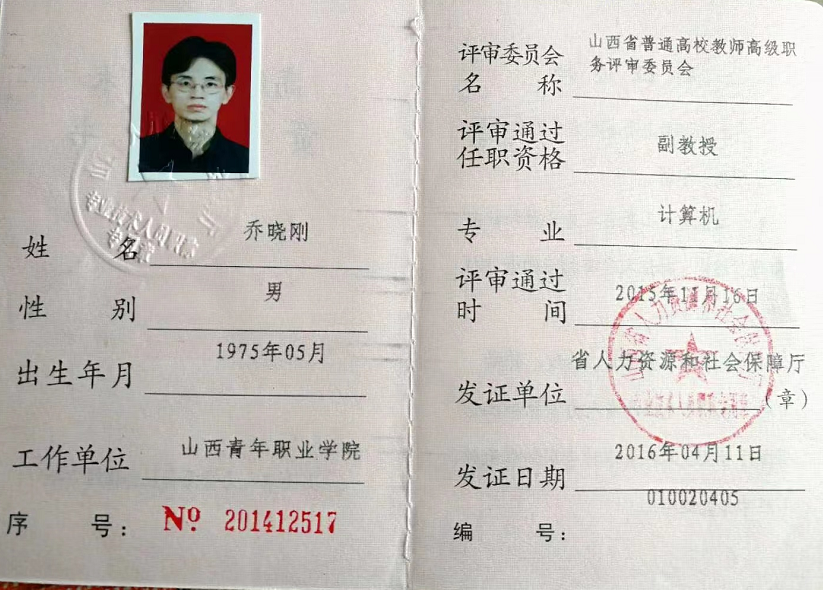 姓 名 乔晓刚
性 别 男
出生年月 1975年05月
工作单位 山西青年职业学院
序 号: № 201412517
评审委员会
名 称
山西省普通高校教师高级职
务评审委员会
评审通过
任职资格
副教授
专 业 计算机
评审通过
时 间
2015年11月16日
省人力资源和社会保障厅
发证单位 (章)
发证日期 2016年04月11日
编 号: 010020405